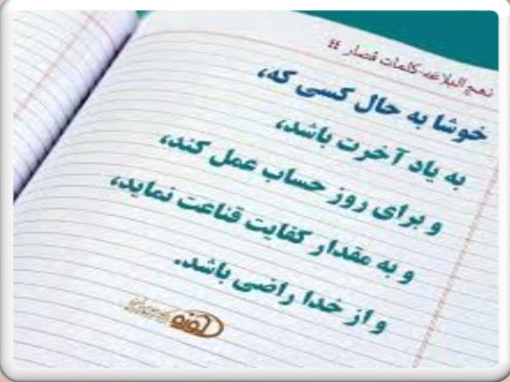 نهج البلاغه کلمات قصار 44
خوشا به حال کسی که،
به یاد آخرت باشد،
و برای روز حساب عمل کند،
و به مقدار کفایت قناعت نماید،
و از خدا راضی باشد.